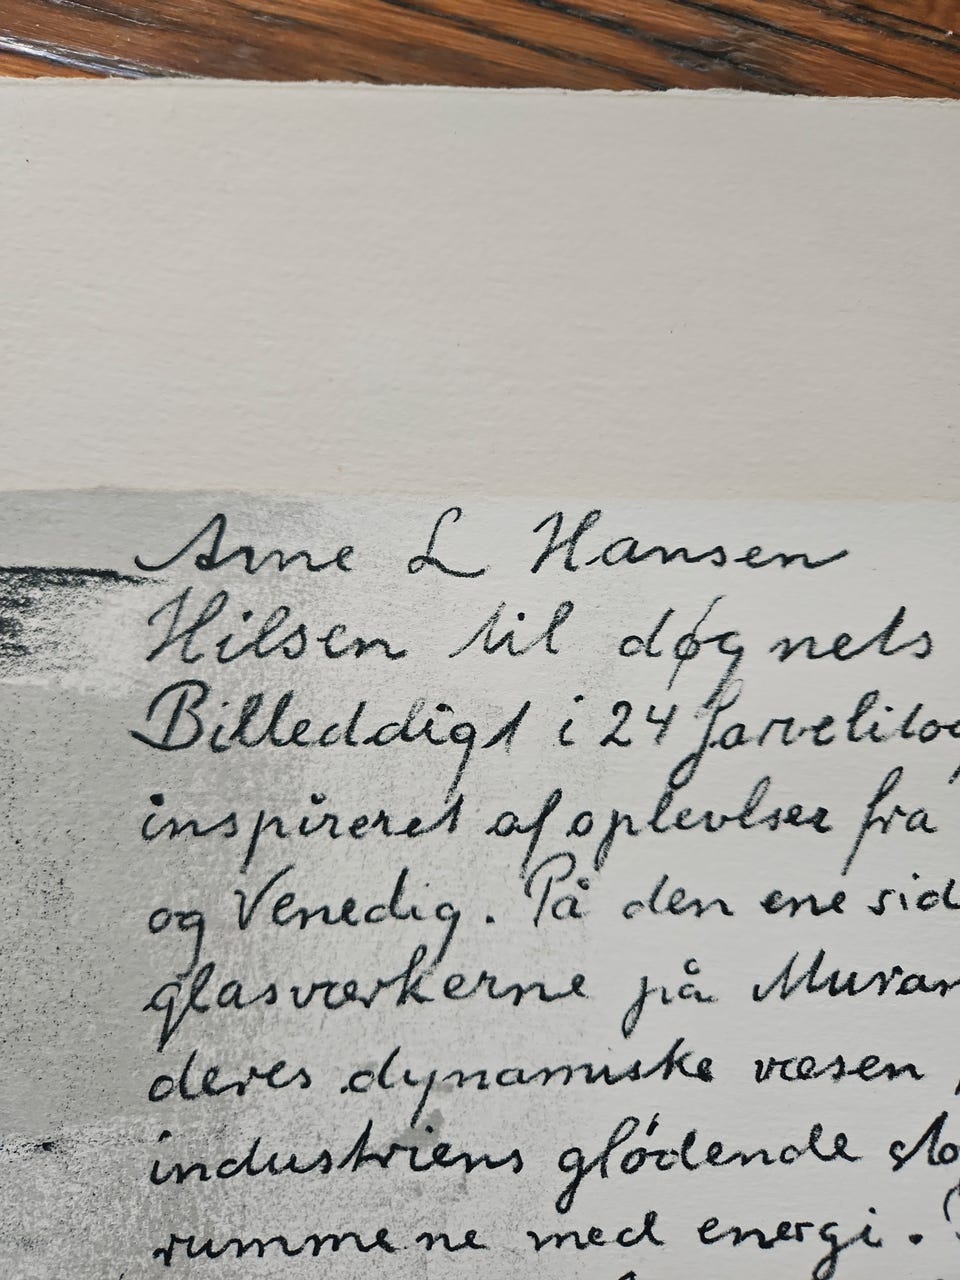 Arne L Hansen
Hilsen til døgnets
Billeddigt i 24 farvelitog
inspireret af oplevelser fra
og Venedig. På den ene sid
glasværkerne på Muran
deres dynamiske væsen
industriens glødende sto
rummene med energi.